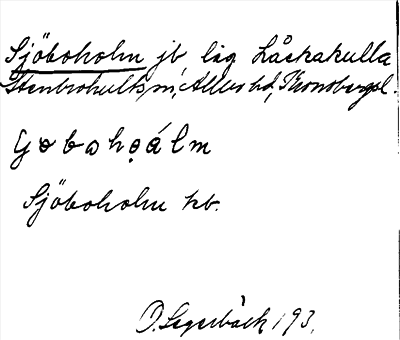 Sjöboholm jb, låg Låckakulla
Stenbrohults sn, Allbo hd, Kronobergs l.
Sjöboholm kb.
O. Lagerbäck 193.